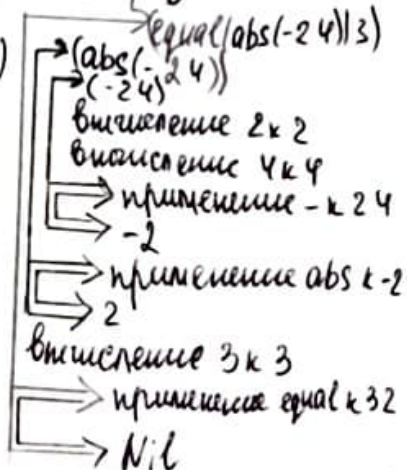 )
(equal(abs(-2 4))3)
(abs(-2 4))
(-2 4)
вычисление 2 к 2
вычисление 4 к 4
применение - к 2 4
-2
применение abs к -2
2
вычисление 3 к 3
применение equal к 3 2
Nil